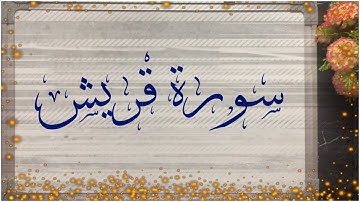 سورة قريش